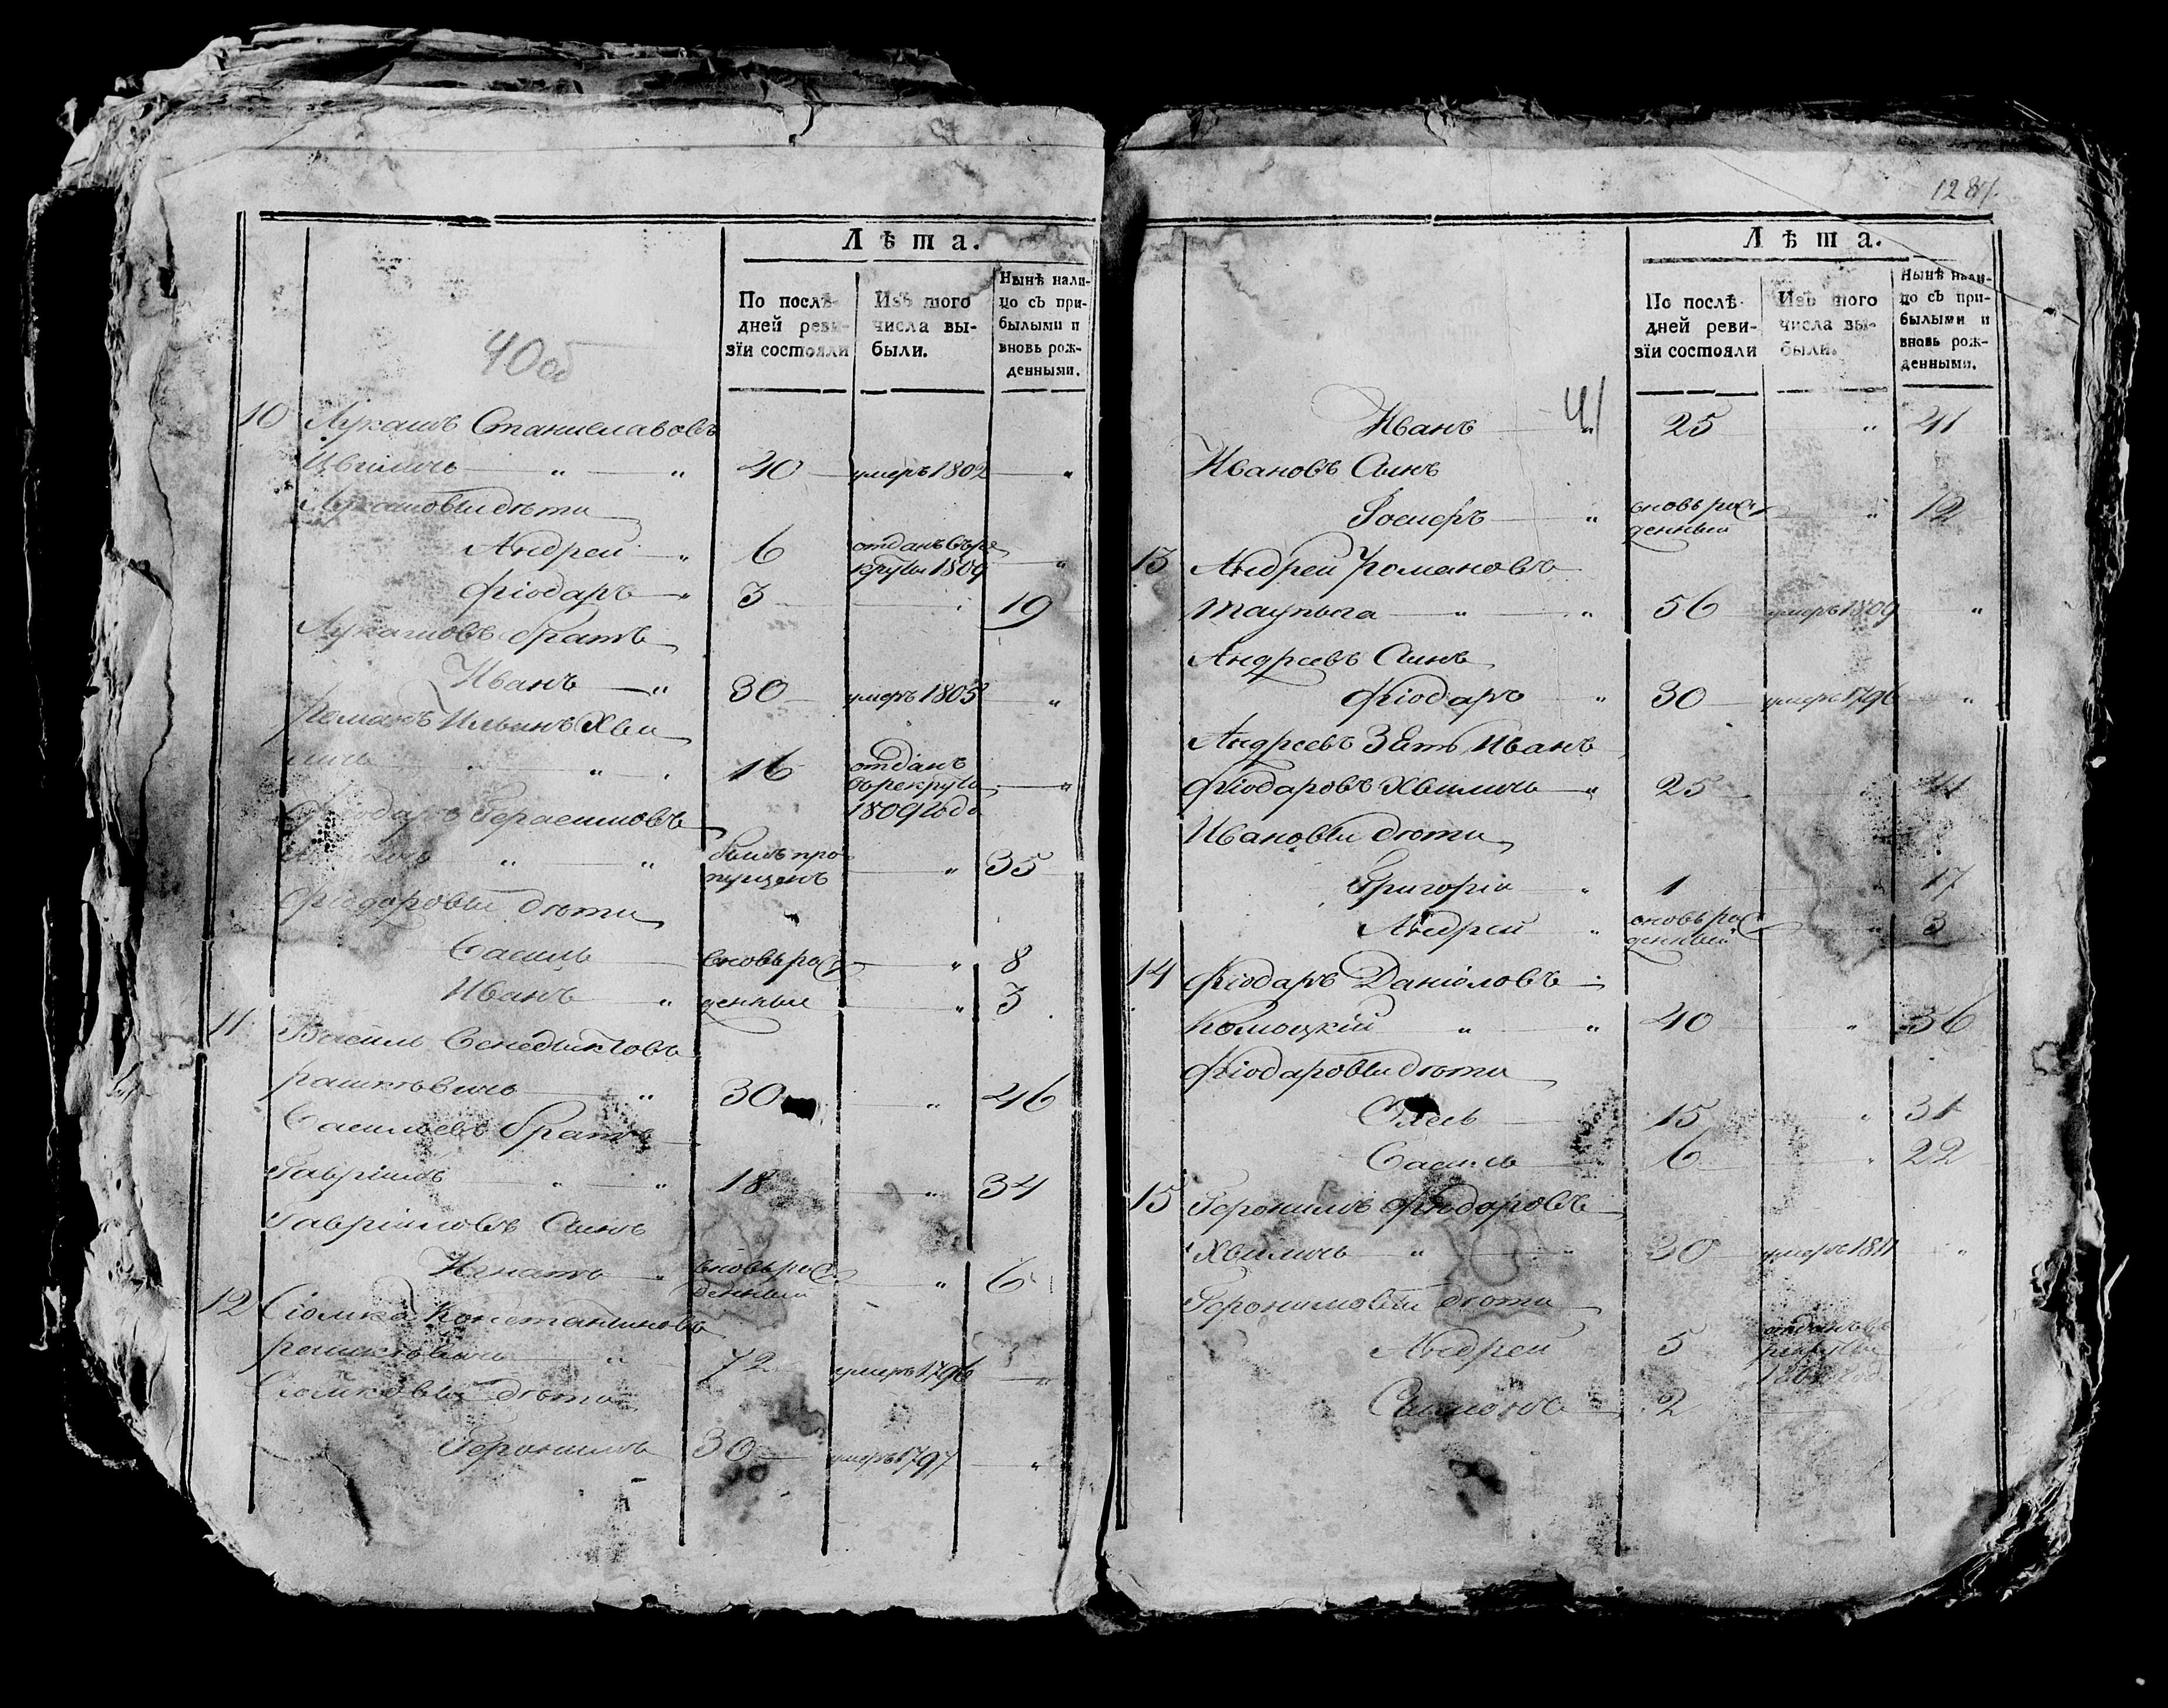 Лѣта.
По послѣдней ревизіи состояли
Изъ того числа выбыли.
Нынѣ налицо съ прибылыми и вновь рожденными.
40об
10 Лукашъ Станиславовъ
Цвиличь " " 40 умеръ 1802 "
Лукашовы дѣти
Андрей " 6 отданъ въ рекруты 1809 "
Фіодаръ " 3 " 19
Лукашовъ братъ
Иванъ " 30 умеръ 1805 "
Романъ Ильинъ Хвиличь " 16 отданъ въ рекруты 1809 года "
Фіодаръ Герасимовъ
" " былъ пропущенъ " 35
Фіодаровы дѣти
Василь вновь рож " 8
Иванъ " денные " 3
11 Василь Бенедыктовъ
Рашкѣвичь " 30 " 46
Васильевъ братъ
Гавріилъ " " 18 " 34
Гавріиловъ сынъ
Игнатъ " вновь рожденный " 6
12 Сіомка Константиновъ
Рашкѣвичь " 72 умеръ 1796 "
Сіомковы дѣти
Геронимъ 30 умеръ 1797 "
128
Лѣта.
По послѣдней ревизіи состояли
Изъ того числа выбыли.
Нынѣ налицо съ прибылыми и вновь рожденными.
41
Иванъ " 25 " 41
Ивановъ сынъ
Іосифъ " вновь рожденный " 12
13 Андрей Романовъ
" " 56 умеръ 1809 "
Андреевъ сынъ
Фіодаръ " 30 умеръ 1796 "
Андреевъ зять Иванъ
Фіодаровъ Хвиличь " 25 41
Ивановы дѣти
Григорій " 1 " 17
Андрей " вновь рожденный " 3
14 Фіодаръ Даніоловъ
" " 40 " 56
Фіодаровы дѣти
Олесь 15 " 31
Василь 6 " 22
15 Геронимъ Фіодаровъ
Хвиличь " " 30 умеръ 1811 "
Геронимовы дѣти
Андрей 5 отданъ въ рекруты
Сымонъ 2